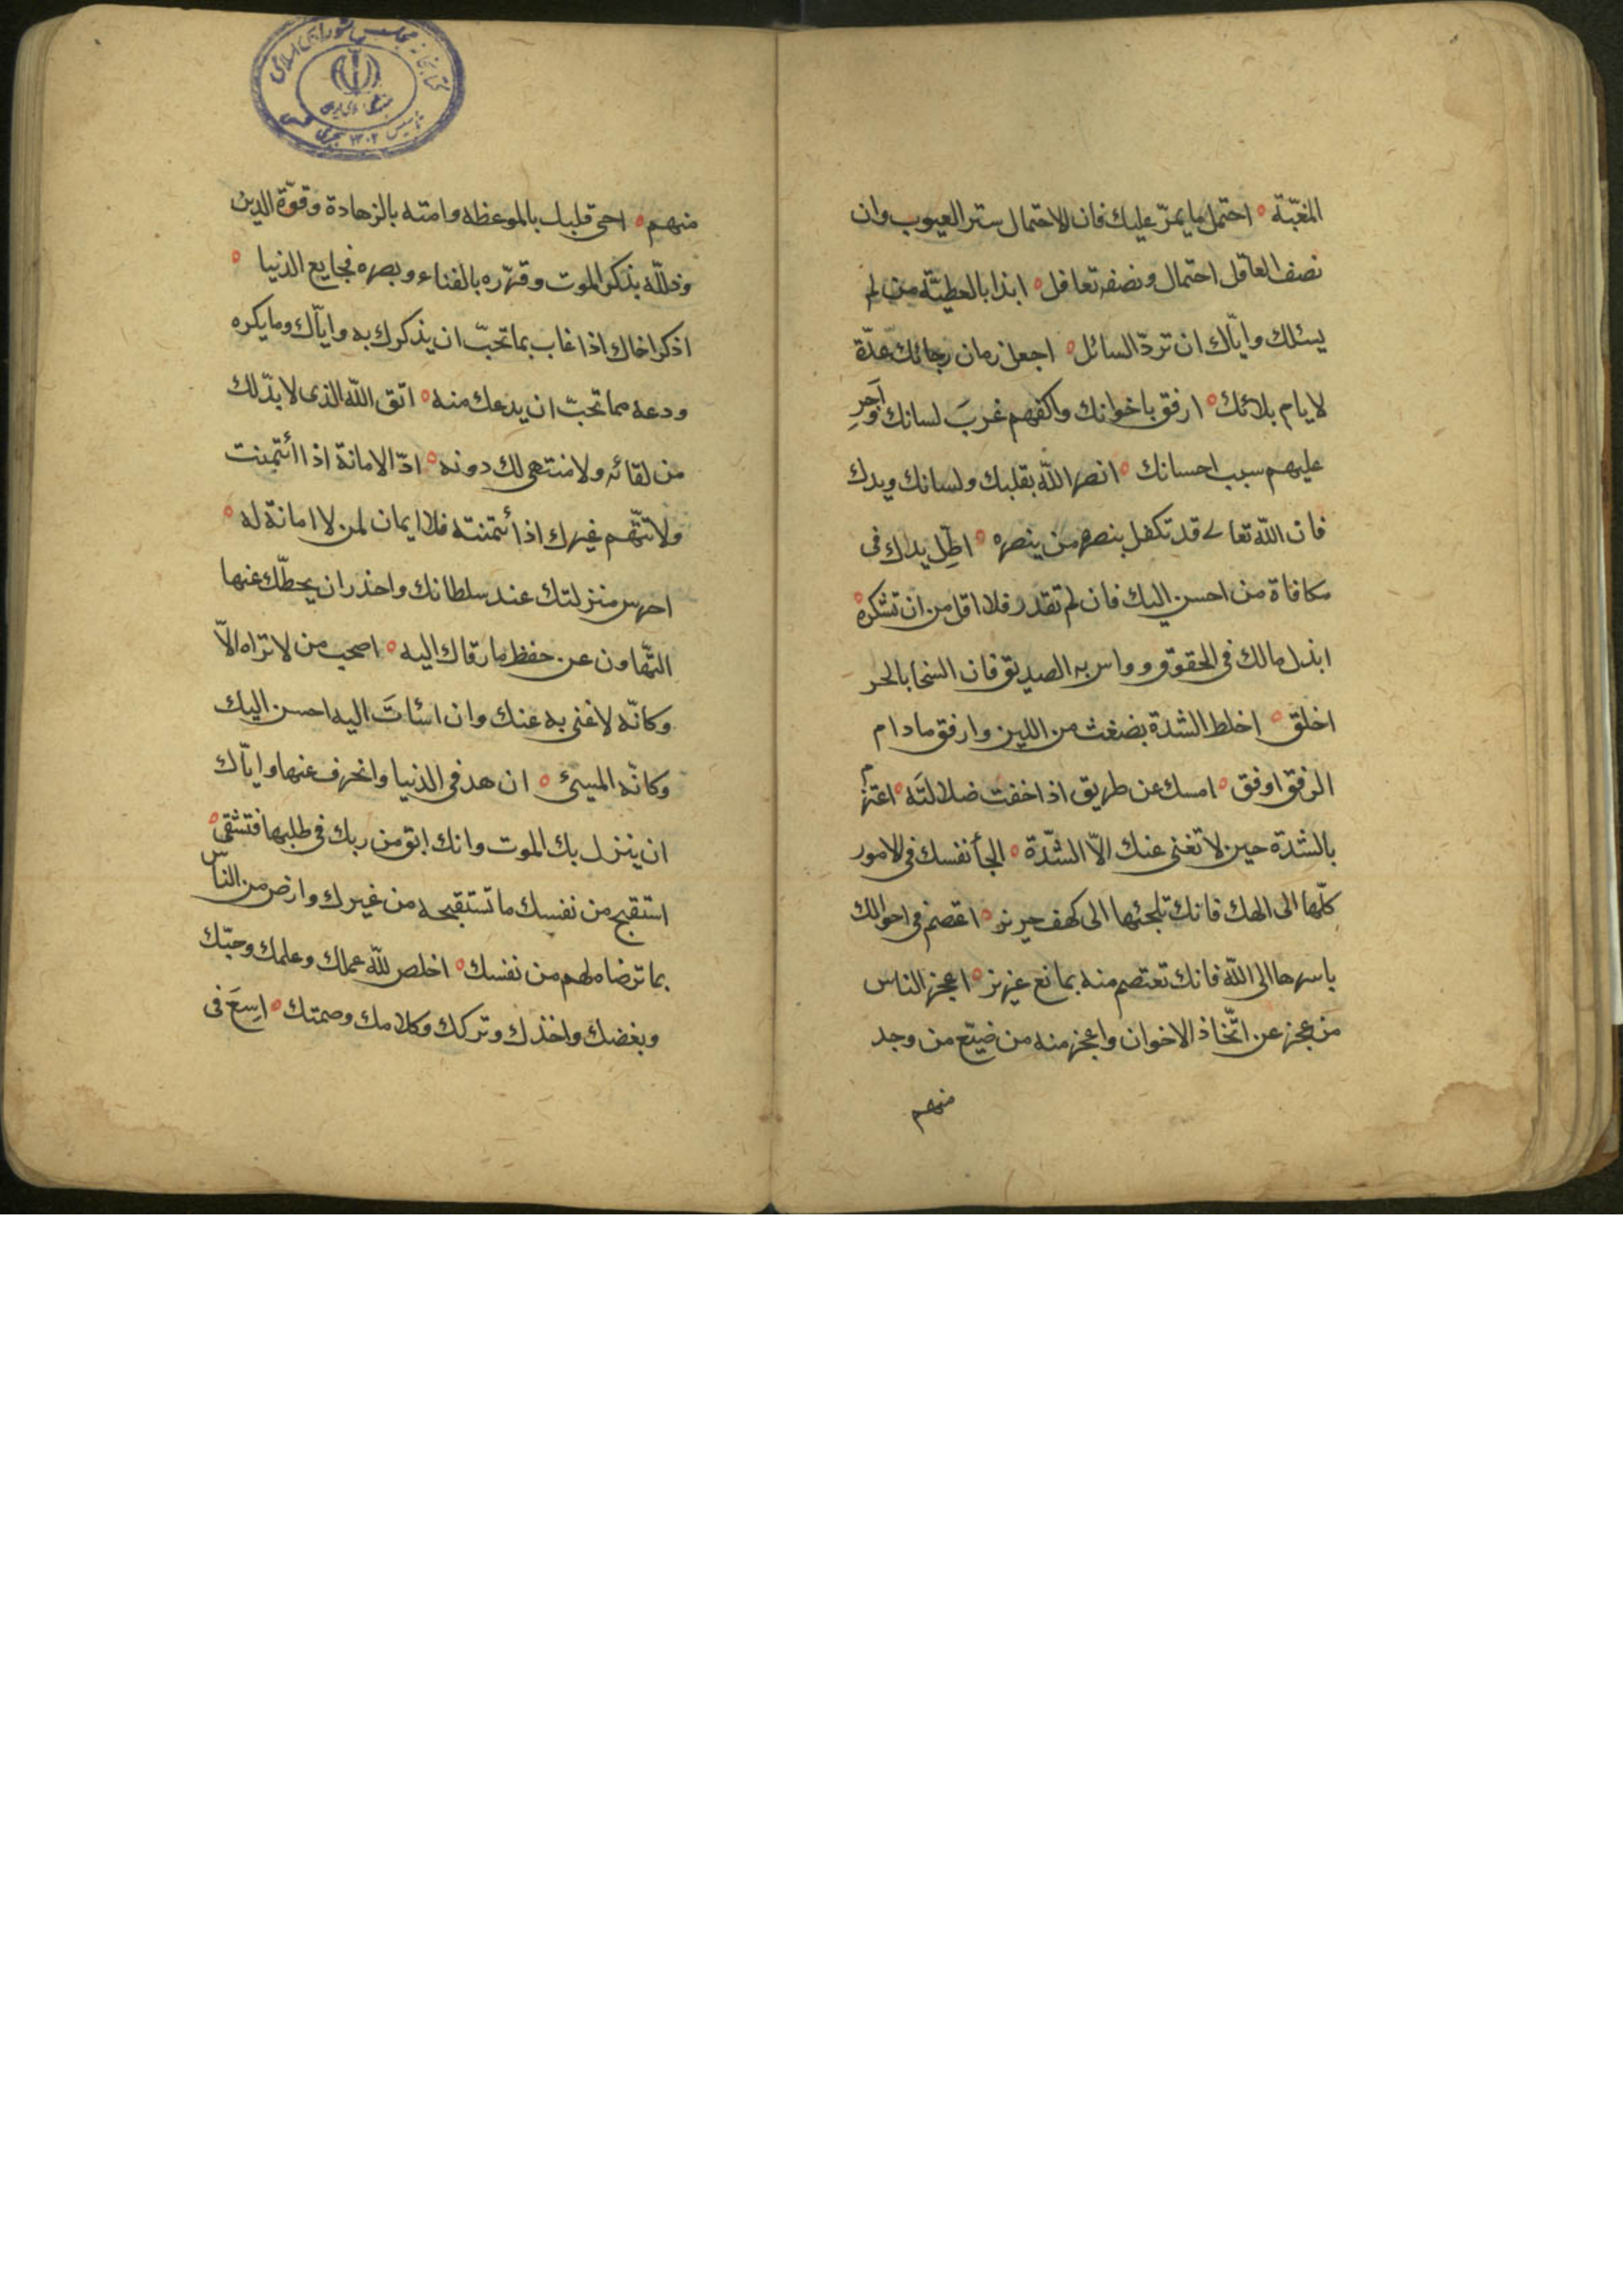 المغبّة ० احتمل ما يمرّ عليك فان الاحتمال ستر العيوب وان
نصف العاقل احتمال ونصفه تغافل ० ابدا بالعطيّة من لم
يسئلك وايّاك ان تردّ السائل ० اجعل زمان رجائك عدّة
لايام بلائك ० ارفق باخوانك واكفهم غربَ لسانك وَاَجرِ
عليهم سيب احسانك ० انصر اللّه بقلبك ولسانك ويدك
فان اللّه تعالى قد تكفل بنصره من ينصره ० اطِل يدك فى
مكافاة من احسن اليك فان لم تقدر فلا اقل من ان تشكره ०
ابذل مالك فى الحقوق وواس به الصديق فان السخا بالحر
اخلق ० اخلط الشدّة بضغث من اللين وارفق مادام
الرفق اوفق ० امسك عن طريق اذا خفت ضلالتَه ० اعتزم
بالشدّة حين لا تغنى عنك الاّ الشّدّة ० الجأ نفسك فى الامور
كلّها الى الهك فانك تلجئها الى كهف حريز ० اعتصم فى احوالك
باسرها الى اللّه فانك تعتصم منه بمانع عزيز ० اعجز الناس
من عجز عن اتّخاذ الاخوان واعجز منه من ضيّع من وجد
منهم
منهم ० احى قلبك بالموعظه وامته بالزهادة وقوّة الدين
وذللّه بذكر الموت وقرّره بالفناء وبصره فجايع الدنيا ०
اذكر اخاك اذا غاب بما تحبّ ان يذكرك به وايّاك وما يكره
ودعه مما تحبّ ان يدعك منه ० اتّق اللّه الذى لا بدّ لك
من لقائه ولا منتهى لك دونه ० ادّ الامانة اذا أئتمنت
ولا تتّهم غيرك اذا ئتمنته فلا ايمان لمن لا امانة له ०
احرس منزلتك عند سلطانك واحذر ان يحطّك عنها
التّهاون عن حفظ ما رقاك اليه ० اصحب من لا تراه الاّ
وكانّه لا غنى به عنك وان اسئاتَ اليه احسن اليك
وكانّه المسىئ ० ان هد فى الدنيا وانحرف عنها وايّاك
ان ينزل بك الموت وانك ابق من ربك فى طلبها فتشقى ०
استقبح من نفسك ما تستقبحه من غيرك وارض من النّاس
بما ترضاه لهم من نفسك ० اخلص للّه عملك وعلمك وحبّك
وبغضك واخذك وتركك وكلامك وصمتك ० اسِعَ فى